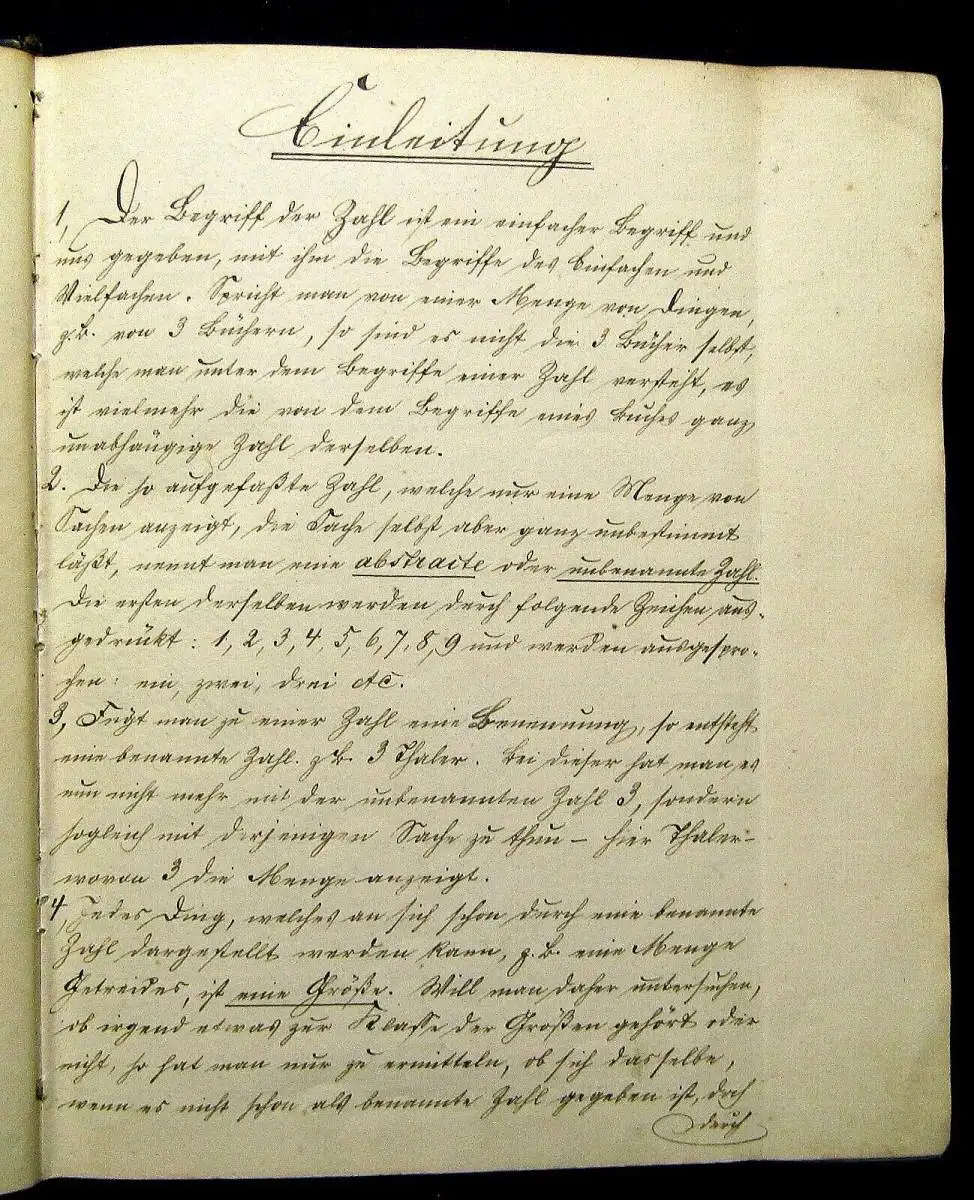 Einleitung
1, Der Begriff der Zahl ist ein einfacher Begriff und
uns gegeben, mit ihm die Begriffe des Einfachen und
Vielfachen. Spricht man von einer Menge von Dingen,
z.B. von 3 Büchern, so sind es nicht die 3 Bücher selbst,
welche man unter dem Begriffe einer Zahl versteht, es
ist vielmehr die von dem Begriffe eines Buches ganz
unabhängige Zahl derselben.
2. Die so aufgefaßte Zahl, welche nur eine Menge von
Sachen anzeigt, die Sache selbst aber ganz unbestimmt
läßt, nennt man eine abstracte oder unbenannte Zahl.
Die ersten derselben werden durch folgende Zeichen aus-
gedrückt: 1, 2, 3, 4, 5, 6, 7, 8, 9 und werden ausgespro-
chen: ein, zwei, drei etc.
3, Fügt man zu einer Zahl eine Benennung, so entsteht
eine benannte Zahl. z.B. 3 Thaler. Bei dieser hat man es
nun nicht mehr mit der unbenannten Zahl 3, sondern
sogleich mit derjenigen Sache zu thun – hier Thaler –
wovon 3 die Menge anzeigt.
4, Jedes Ding, welches an sich schon durch eine benannte
Zahl dargestellt werden kann, z.B. eine Menge
Getreides, ist eine Größe. Will man daher untersuchen,
ob irgend etwas zur Klasse der Größen gehört oder
nicht, so hat man nur zu ermitteln, ob sich dasselbe,
wenn es nicht schon als benannte Zahl gegeben ist, doch
durch